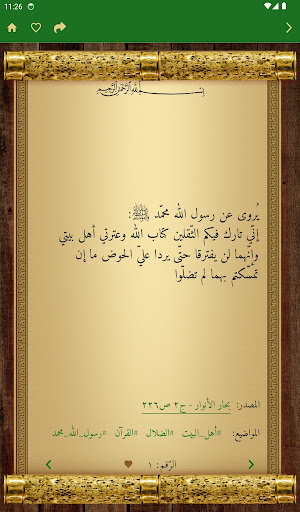 11:26
بسم الله الرحمن الرحيم
يُروى عن رسول الله محمّد ﷺ:
إنّي تارك فيكم الثّقلين كتاب الله وعترتي أهل بيتي
وإنّهما لن يفترقا حتّى يردا عليّ الحوض ما إن
تمسّكتم بهما لم تضلّوا
المصدر: بحار الأنوار - ج٢ ص٢٢٦
المواضيع: #أهل_البيت #الضلال #القرآن #رسول_الله_محمد
الرّقم: ١